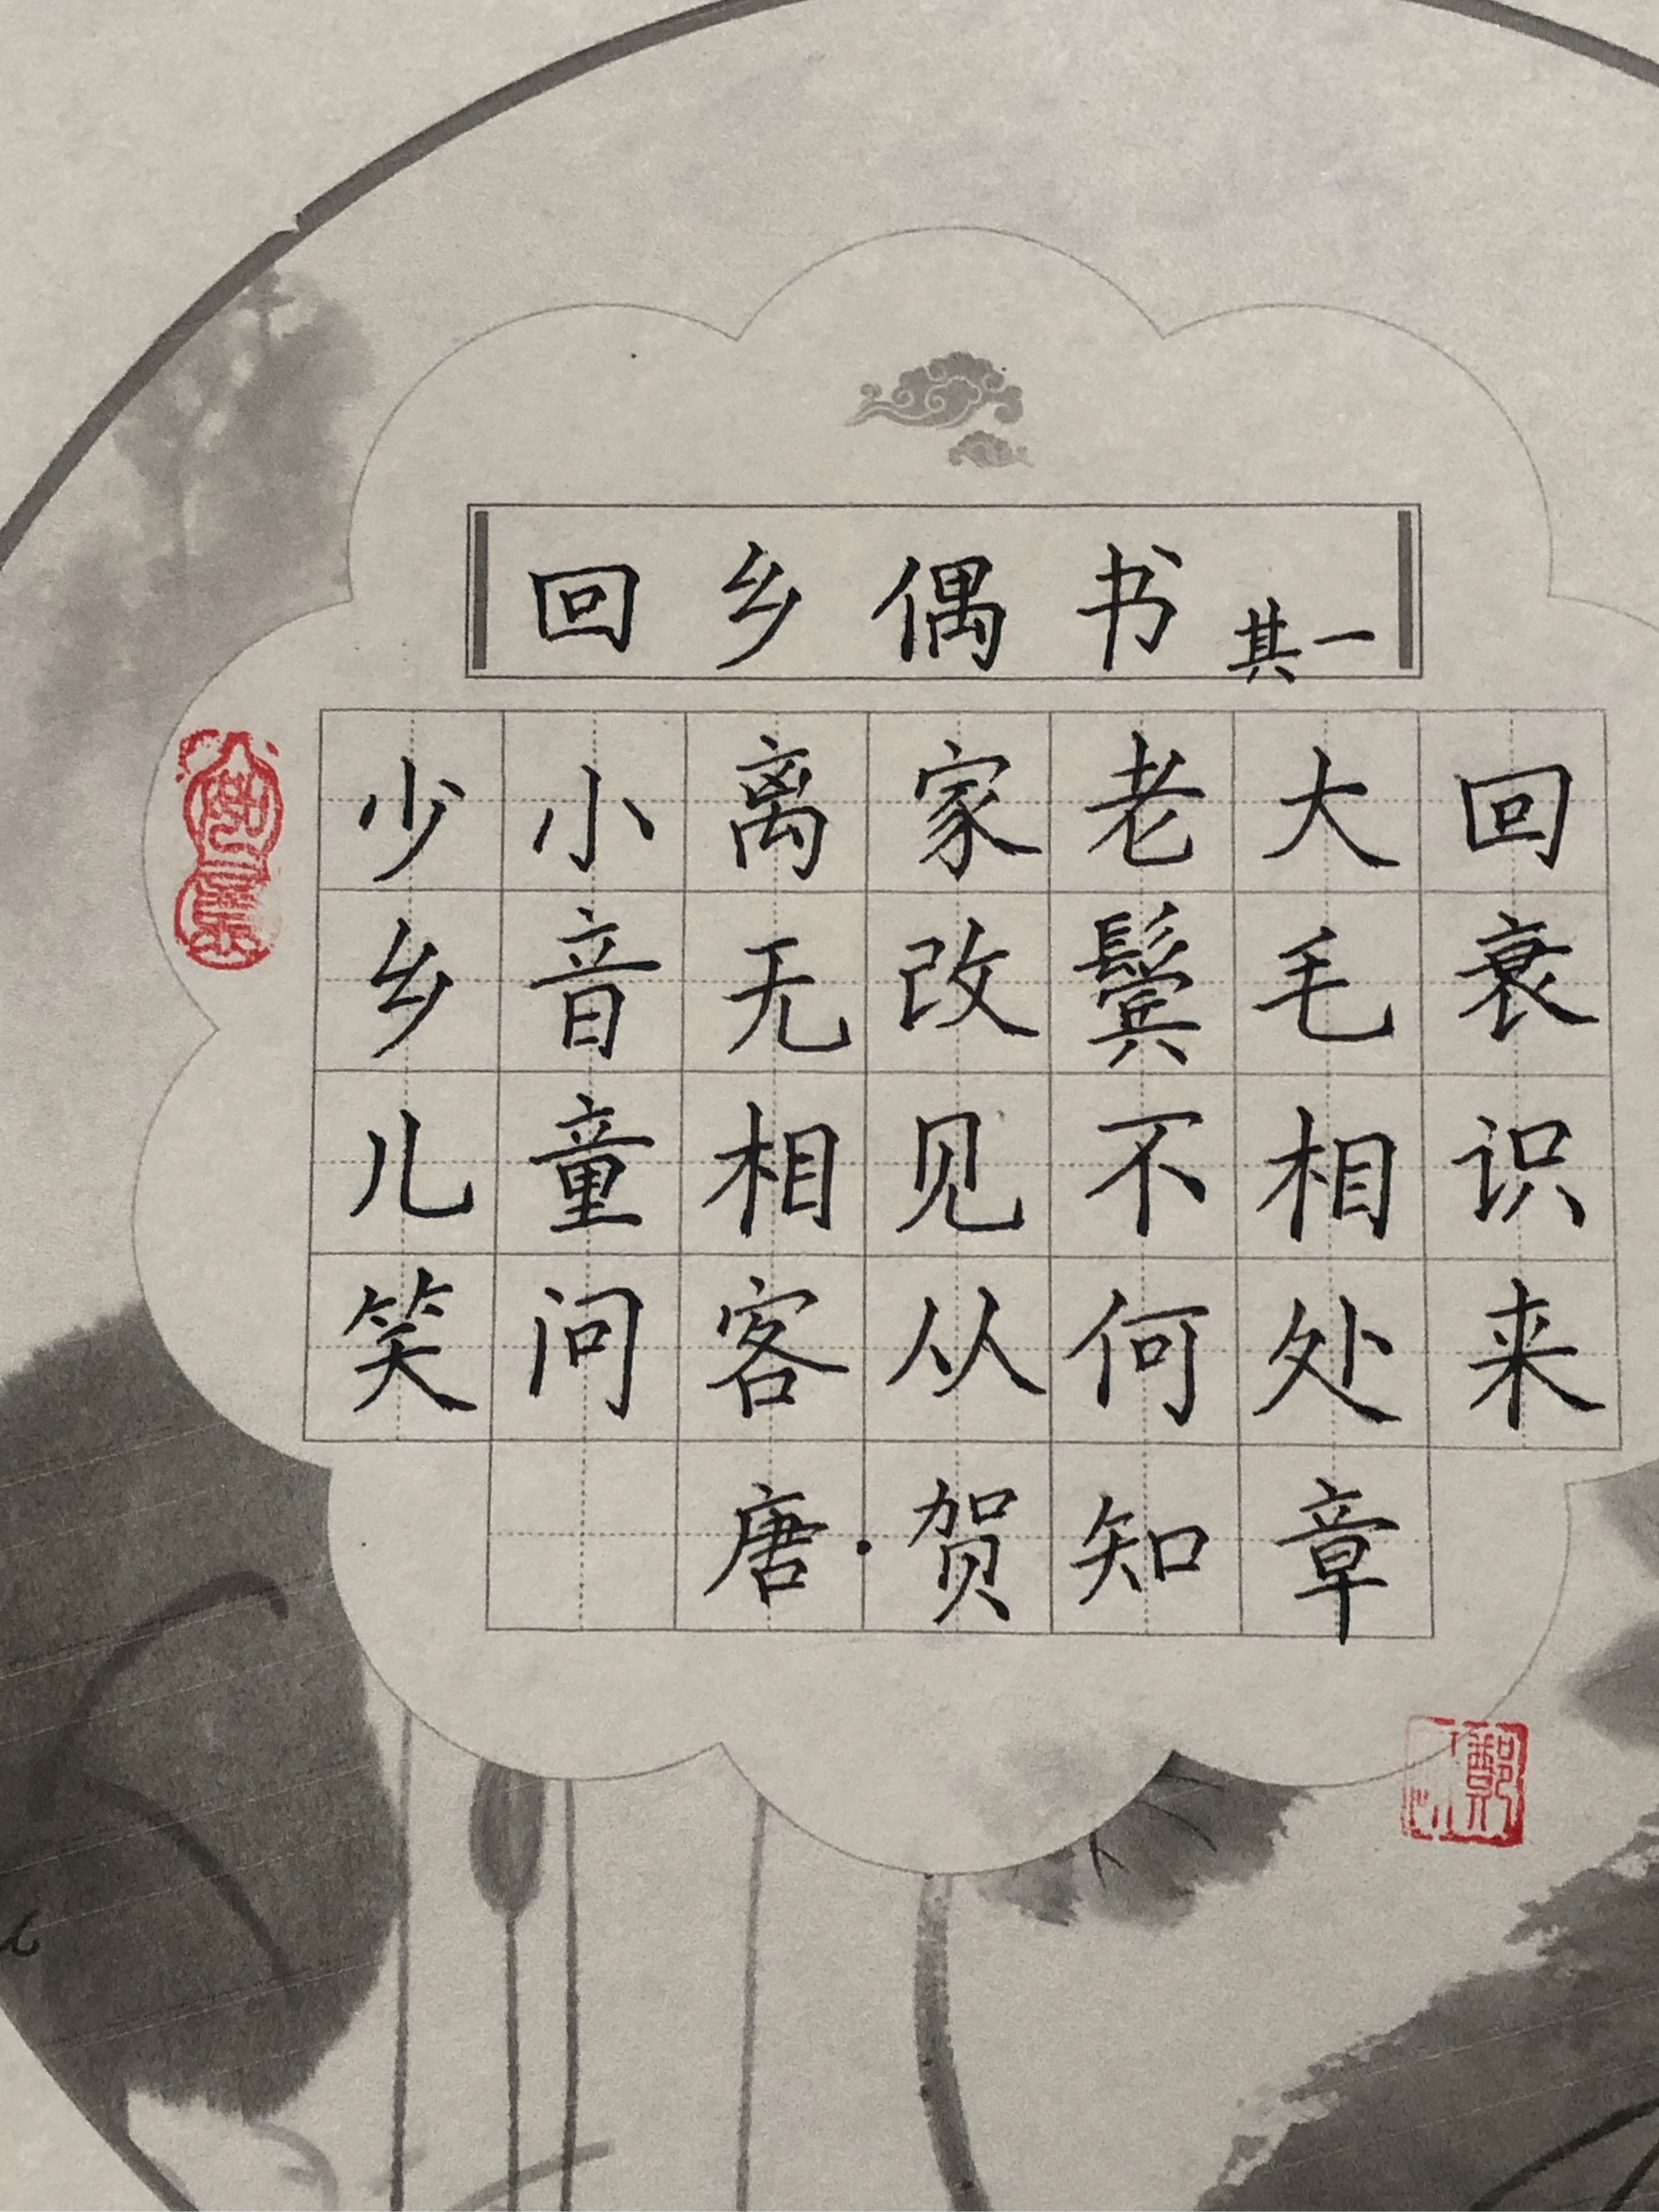 回乡偶书 其一
少小离家老大回
乡音无改鬓毛衰
儿童相见不相识
笑问客从何处来
唐·贺知章